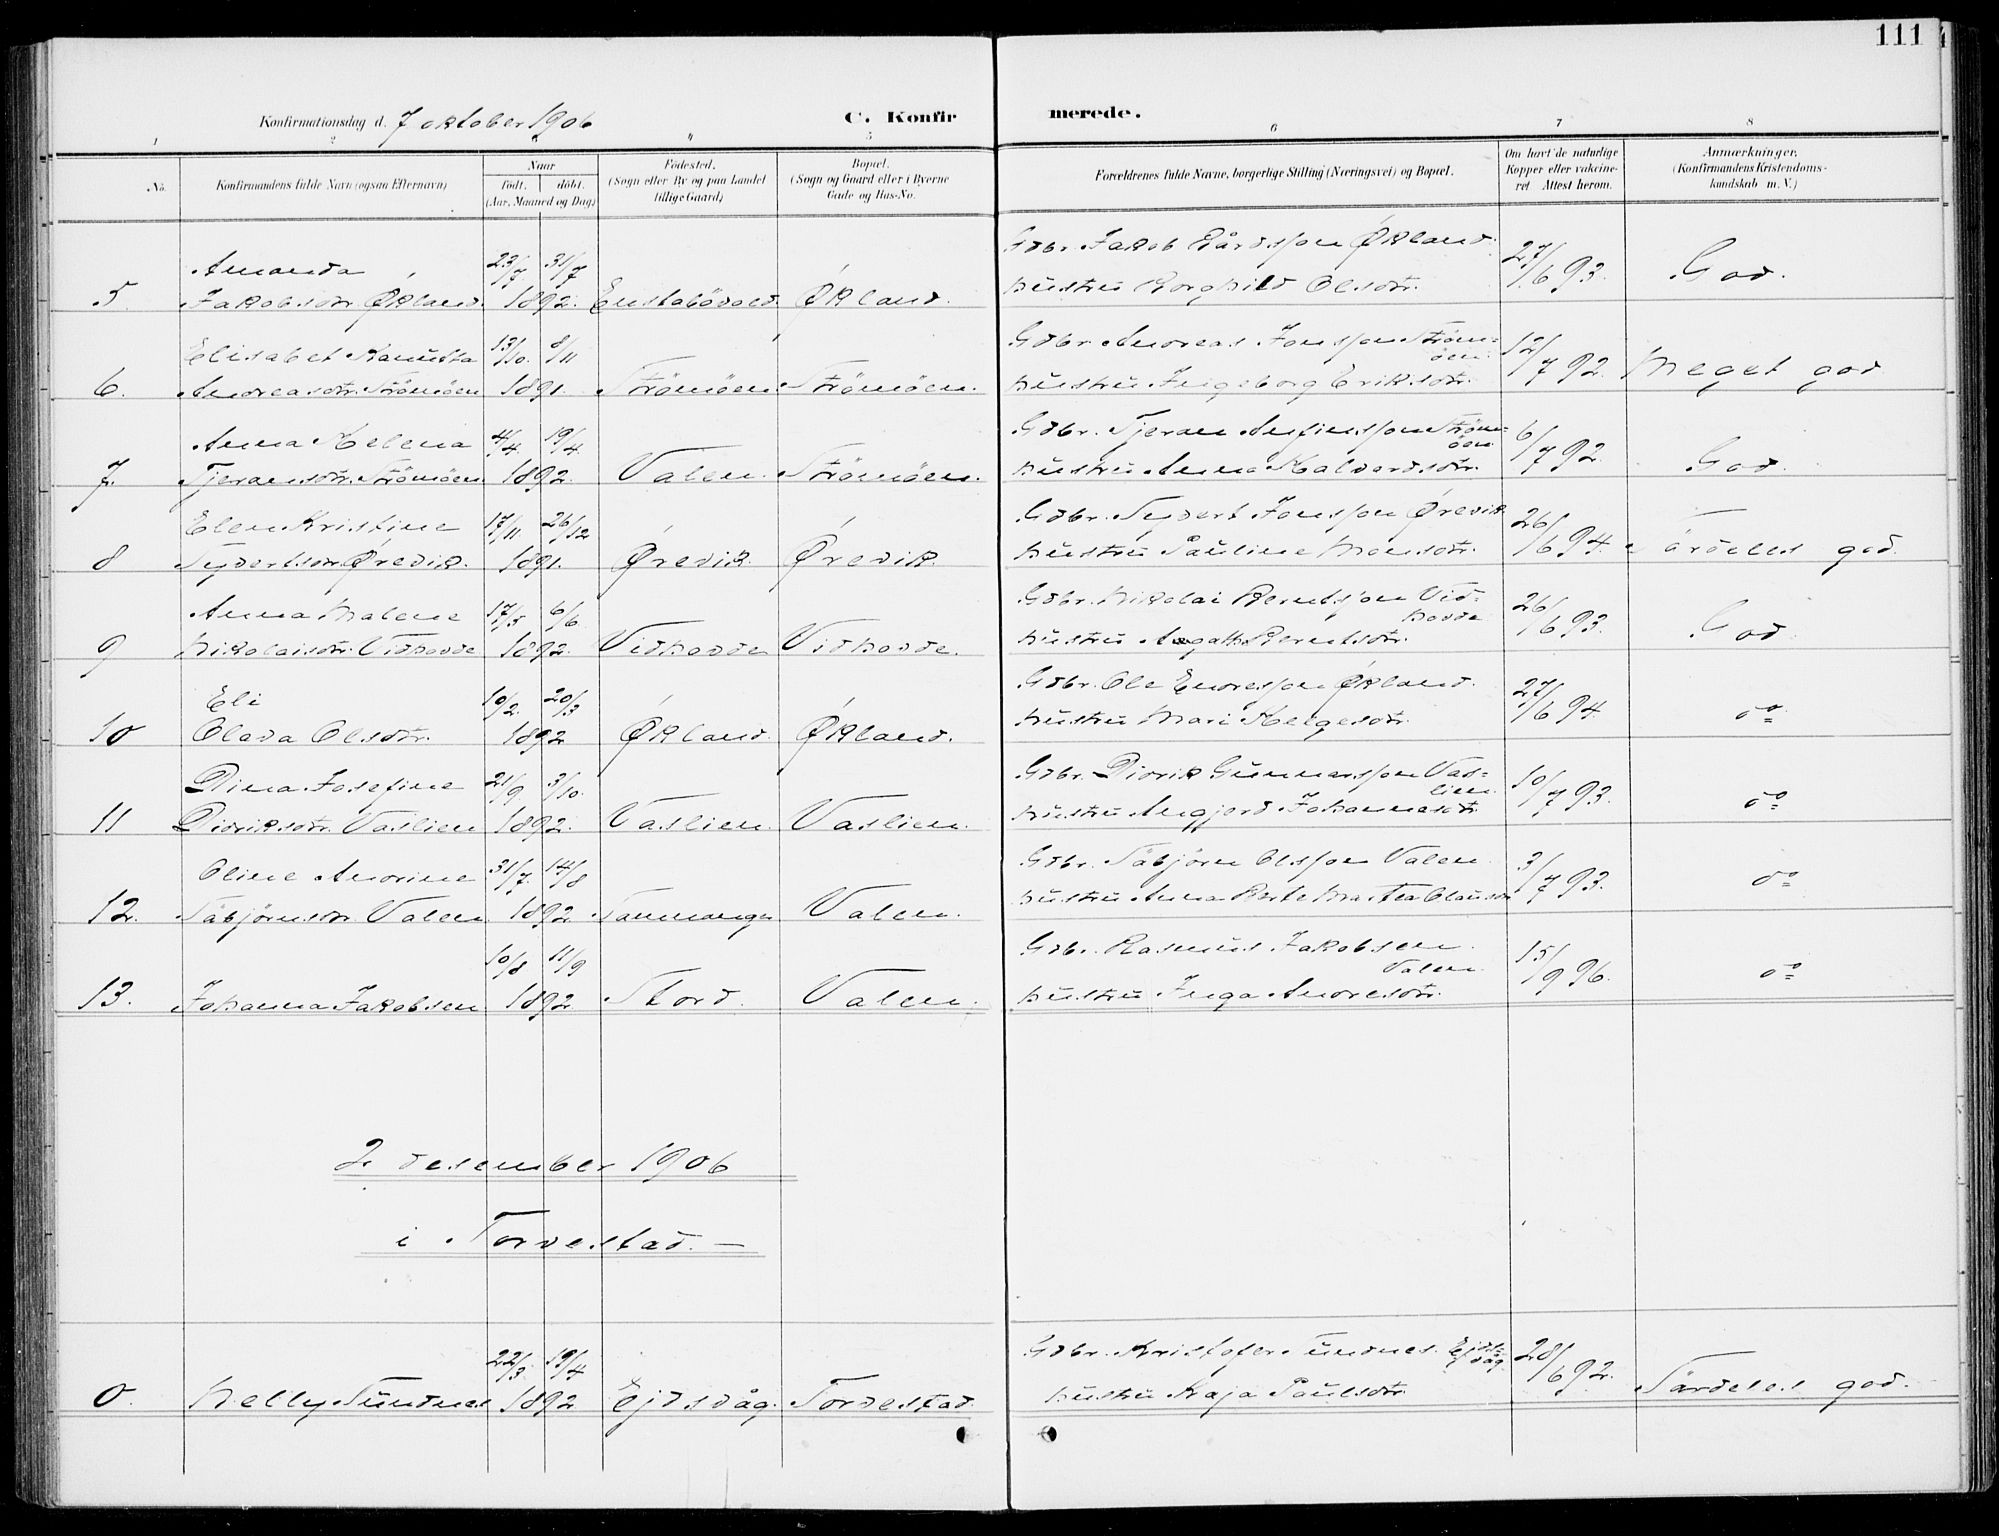 111
Konfirmationsdag d. 7 oktober 1906
C. Konfirmerede.
1 2 3 4 5 6 7 8
No.
Konfirmandens fulde Navn (ogsaa Efternavn)
Naar
født. døbt.
(Aar, Maaned og Dag)
Fødested.
(Sogn eller By og paa Landet
tillige Gaard)
Bopæl.
(Sogn og Gaard eller i Byerne
Gade og Hus-No.
Forældrenes fulde Navne, borgerlige Stilling (Næringsvei) og Bopæl.
Om havt de naturlige
Kopper eller vakcine-
ret Attest herom.
Anmærkninger.
(Konfirmandens Kristendoms-
kundskab m. V.)
Amanda 23/7 31/7 Gdbr. Jakob Økland 27/6 93. God.
5 Jakobsdtr. Økland. 1892. Økland. hustru Borghild Olsdtr.
Elisabet 13/10. 8/11 Gdbr. Andreas Jonsson Strøm- 12/7 92. Meget god
øen.
6. Andreasdtr. Strømøen 1891. Strømøen. Strømøen. hustru Ingeborg Eriksdtr.
Anna Helena 4/4 19/4 Gdbr. Tjeran Strøm- 6/7 92. God.
øen.
7. Tjeransdtr. Strømøen 1892. Valen. Strømøen. hustru Anna Halvardsdtr.
Elen Kristine 17/11. 26/12 Gdbr. Sjovert Jonsson Ørevik 26/6 94. Særdeles god.
8 Ørevik. 1891. Ørevik. Ørevik. hustru Pauline Monsdtr.
Anna Malene 17/5 6/6. Gdbr. Nikolai Berntsson Vid- 26/6 93. God.
hovde
9 Nikolaisdtr. Vidhovde 1892. Vidhovde Vidhovde. hustru Agatha Berntsdtr.
Eli 10/2. 20/3 Gdbr. Ole Endresson Økland. 27/6 94. do
10 Olava Olsdtr. 1892 Økland. Økland. hustru Mari Helgesdtr.
Dina Josefine 21/9 3/10. Gdbr. Didrik Gunnarsson Vas- 10/7 93. do
lien.
11 Didriksdtr. Vaslien 1892. Vaslien. Vaslien. hustru Angjerd Johannesdtr.
Oline Andrine 31/7. 14/8 Gdbr. Sæbjørn Olsson Valen. 3/7 93. do
12. Sæbjørnsdtr. Valen. 1892 Valen. hustru Anna Berte Martea
10/8 11/9 Gdbr. Rasmus Jakobsen. 15/9 96. do
Valen.
13. Johanna Jakobsen 1892. Stord. Valen. hustru Inga Andresdtr.
2. desember 1906
i Torvestad. —
22/3. 19/4 Gdbr. Kristofer Tundnes. Ejds-
våg. 28/6 92. Særdeles god.
0. Nelly Tundnes 1892 Ejdsvåg. Torvestad. hustru Kaja Paulsdtr.